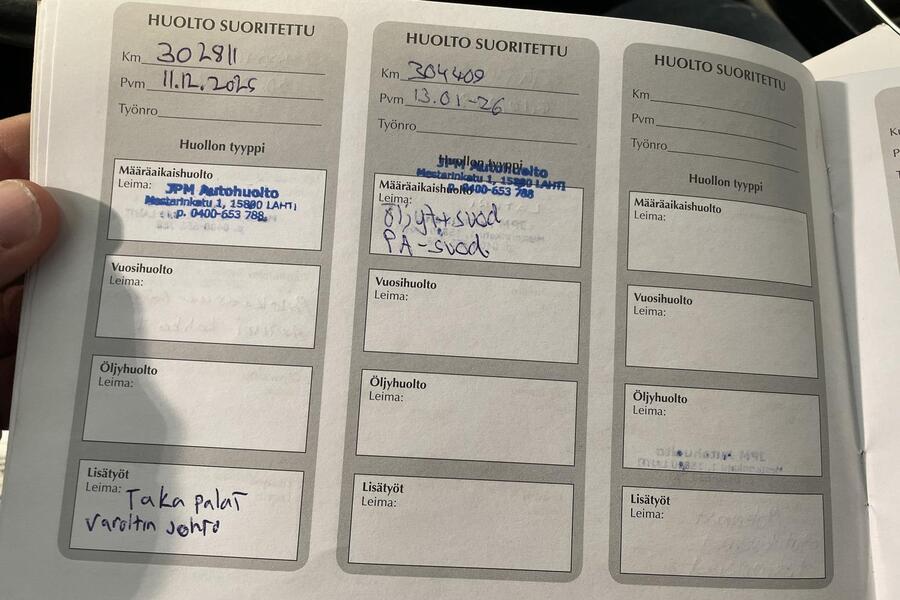 HUOLTO SUORITETTU
Km 302811
Pvm 11.12.2025
Työnro
Huollon tyyppi
Määräaikaishuolto
Leima:
JPM Autohuolto
Mestarinkatu 1, 15800 LAHTI
p. 0400-653 788
Vuosihuolto
Leima:
Öljyhuolto
Leima:
Lisätyöt
Leima: Taka palat
varoitin johto
HUOLTO SUORITETTU
Km 304409
Pvm 13.01-26
Työnro
Huollon tyyppi
JPM Autohuolto
Mestarinkatu 1, 15800 LAHTI
p. 0400-653 788
Määräaikaishuolto
Leima:
Öljyt+suod
PA-suod.
Vuosihuolto
Leima:
Öljyhuolto
Leima:
Lisätyöt
Leima:
HUOLTO SUORITETTU
Km
Pvm
Työnro
Huollon tyyppi
Määräaikaishuolto
Leima:
Vuosihuolto
Leima:
Öljyhuolto
Leima:
Lisätyöt
Leima: